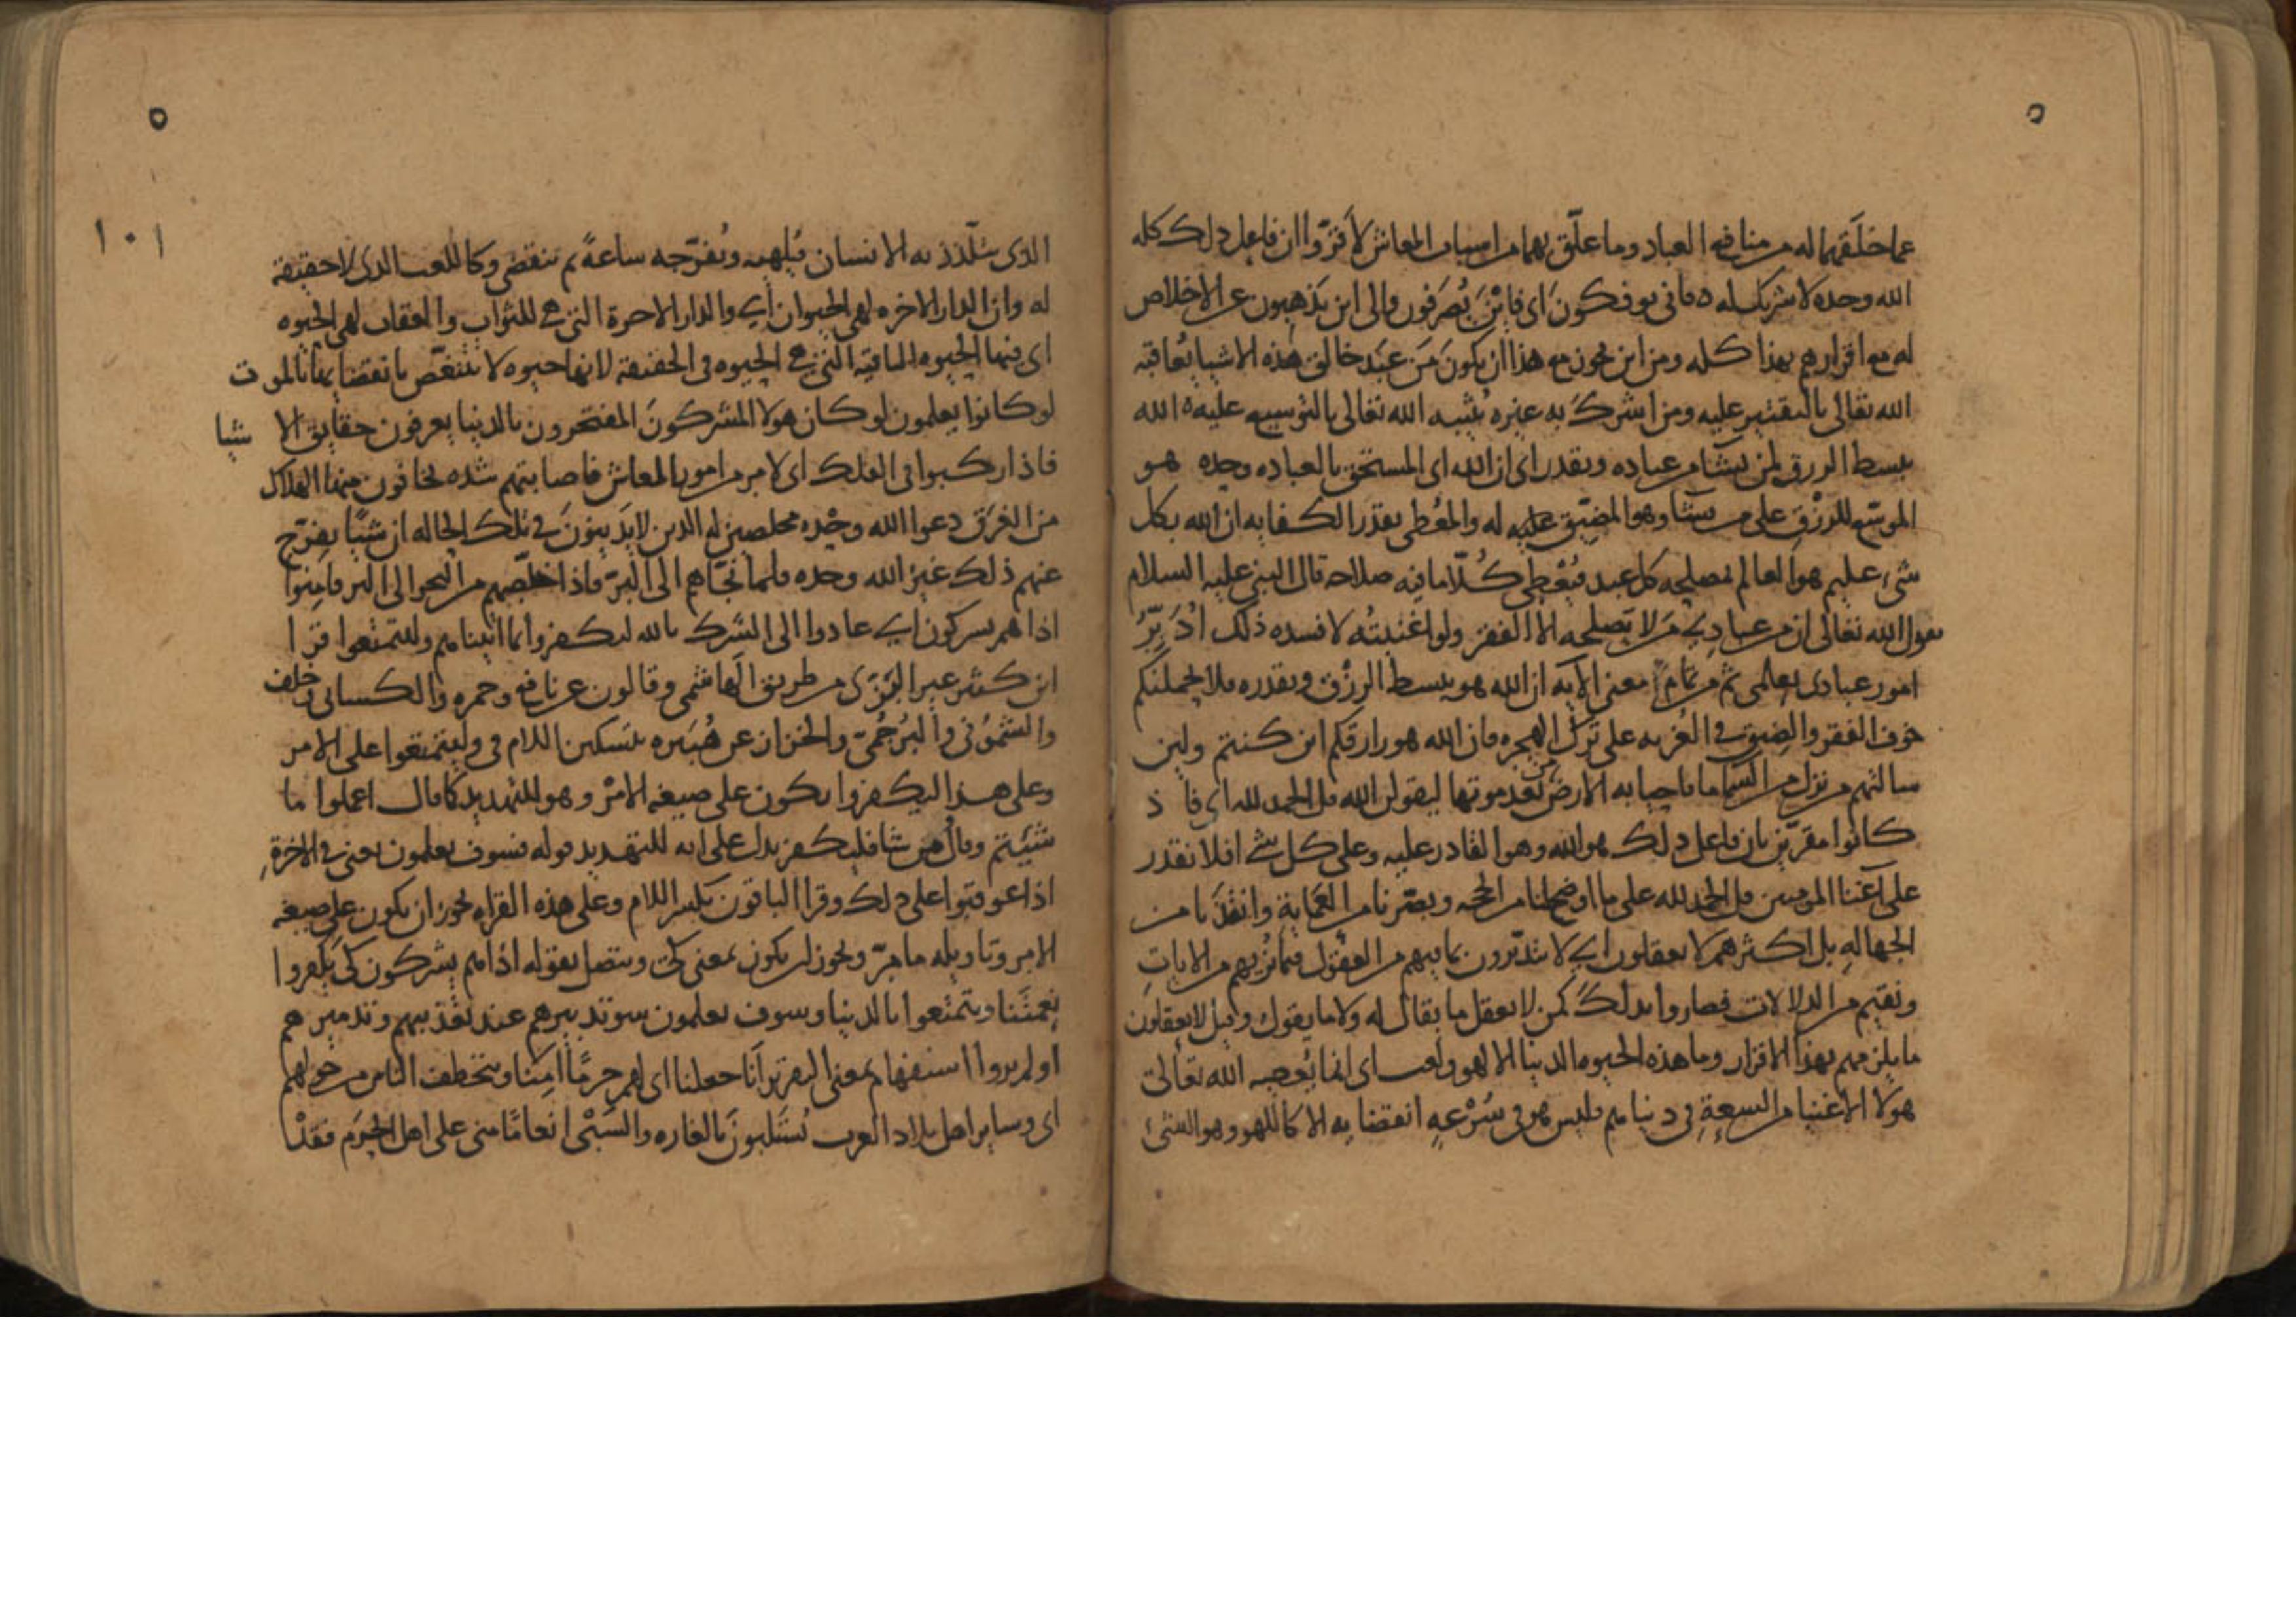 عما خلقهما له من منافع العباد وما علّق بهما من اسباب المعاش لأقرّوا ان فاعل ذلك كله
الله وحده لا شريك له فانى يوفكون اى فاين يُصرفون والى اين يذهبون عن الاخلاص
له مع اقرارهم بهذا كله ومن اين يجوز مع هذا ان يكون مَن عَبَد خالق هذه الاشيا يُعاقبه
الله تعالى بالتقتير عليه ومن اشرك به غيره يُثيبه الله تعالى بالتوسيع عليه الله
يبسط الرزق لمن يشا من عباده ويقدر اى ان الله اى المستحق بالعباده وحده هو
الموسّع للرزق على من يشا وهو المضيّق عليه له والمعُطى بقدر الكفايه ان الله بكل
شىء عليم هو العالم بمصلحه كل عبد فيُعْطى كُلّا ما فيه صلاحه قال النبى عليه السلام
يقول الله تعالى ان من عبادي مَن لا يَصلحه الا الفقر ولو اغنيتُه لافسده ذلك اُدَبِّرُ
امور عبادى بعلمى ثم من تمام معنى الايه ان الله هو يبسط الرزق ويقدره فلا يحملنكم
خوف الفقر والضيق في الغُربه على ترك الهجره فان الله هو رازقكم اين كنتم ولين
سالتهم من نزل من السما ما فاحيا به الارض من بَعد موتها ليقولن الله قل الحمد لله اى فا ذ
كانوا مقرّين بان فاعل ذلك هو الله وهو القادر عليه وعلى كل شى افلا نقدر
على اغنا المومنين قل الحمد لله على ما اوضح لنا من الحجه وبصّرنا من العَمَاية وانقذنا من
الجهالهِ بل اكثرهم لا يعقلون اي لا يتدبّرون بما فيهم من العقول فيما نُريهم من الاياتِ
ونقيم من الدلالات فصاروا بذلك كمن لا يعقل ما يقال له ولا ما يقول وقيل لا يعقلون
ما يلزمهم بهذا الاقرار وما هذه الحيوه الدنيا الا لهو ولعب اى انما يُعجبه الله تعالى
هولا الاغنيا من السعةِ فى دنياهم فليس هو فى سُرْعهِ انقضايه الا كاللهو وهو الشئ
الذى يتلّذذ به الانسان فيُلهيه ويُفرّجه ساعةً ثم تنقضى وكاللعب الذى لا حقيقه
له وان الدار الاخره لهى الحيوان اي والدار الاخرة التى هى للثواب والعقاب لهى الحيوه
اى فيها الحيوه الباقيه التى هى الحيوه فى الحقيقه لانها حيوه لا تتنغّص بانقضايها بالموت
لو كانوا يعلمون لو كان هولا المشركونَ المفتخرون بالدنيا يعرفون حقايق الاشيا
فاذا ركبوا فى الفلك اى لامر من امور المعاش فاصابتهم شده يخافون منها الهلاك
من الغَرَق دعوا الله وحْده مخلصين له الدين لا يَدينونَ فى تلك الحاله ان شيًا يفرّج
عنهم ذلك غيرُ الله وحده فلما نجّاهم الى البَرّ فاذا خلّصهم من البحر الى البر فامِنوا
اذا هم يشركون اي عادوا الى الشرك بالله ليكفروا بما اتيناهم وليتمتعوا قرا
ابن كثير غير البَزّى من طريق الهاشمى وقالون عن نافع وحمزه والكسائى وخلف
والشمُونى والبُرجُمىّ والخزاز عن هُبَيره بتسكين اللام فى وليتمتعوا على الامر
وعلى هذا ليكفروا يكون على صيغه الامْر وهو للتهديد كما قال اعملوا ما
شيتم وقال فمن شا فليكفر يدل على انه للتهديد قوله فسوف يعلمون يعنى فى الاخرةِ
اذا عوقبوا على ذلك وقرا الباقون بكسر اللام وعلى هذه القراه يجوز ان يكون على صيغه
الامر وتاويله ما مرّ ويجوز ان يكون بمعنى كى ويتصل بقوله اذا هم يشركون كى يكفروا
بنعمتنا ويتمتّعوا بالدنيا وسوف يعلمون سو تدبيرهم عند تعذيبهم وتدميرهم
اولم يروا استفهام بمعنى التقرير انا جعلنا اى لهم حرمًا امنا ويتخطف الناس من حولهم
اى وساير اهل بلاد العرب يُستَلبونَ بالغاره والسَبْى انعامًا منى على اهل الحرَم فقدْ
١٠١